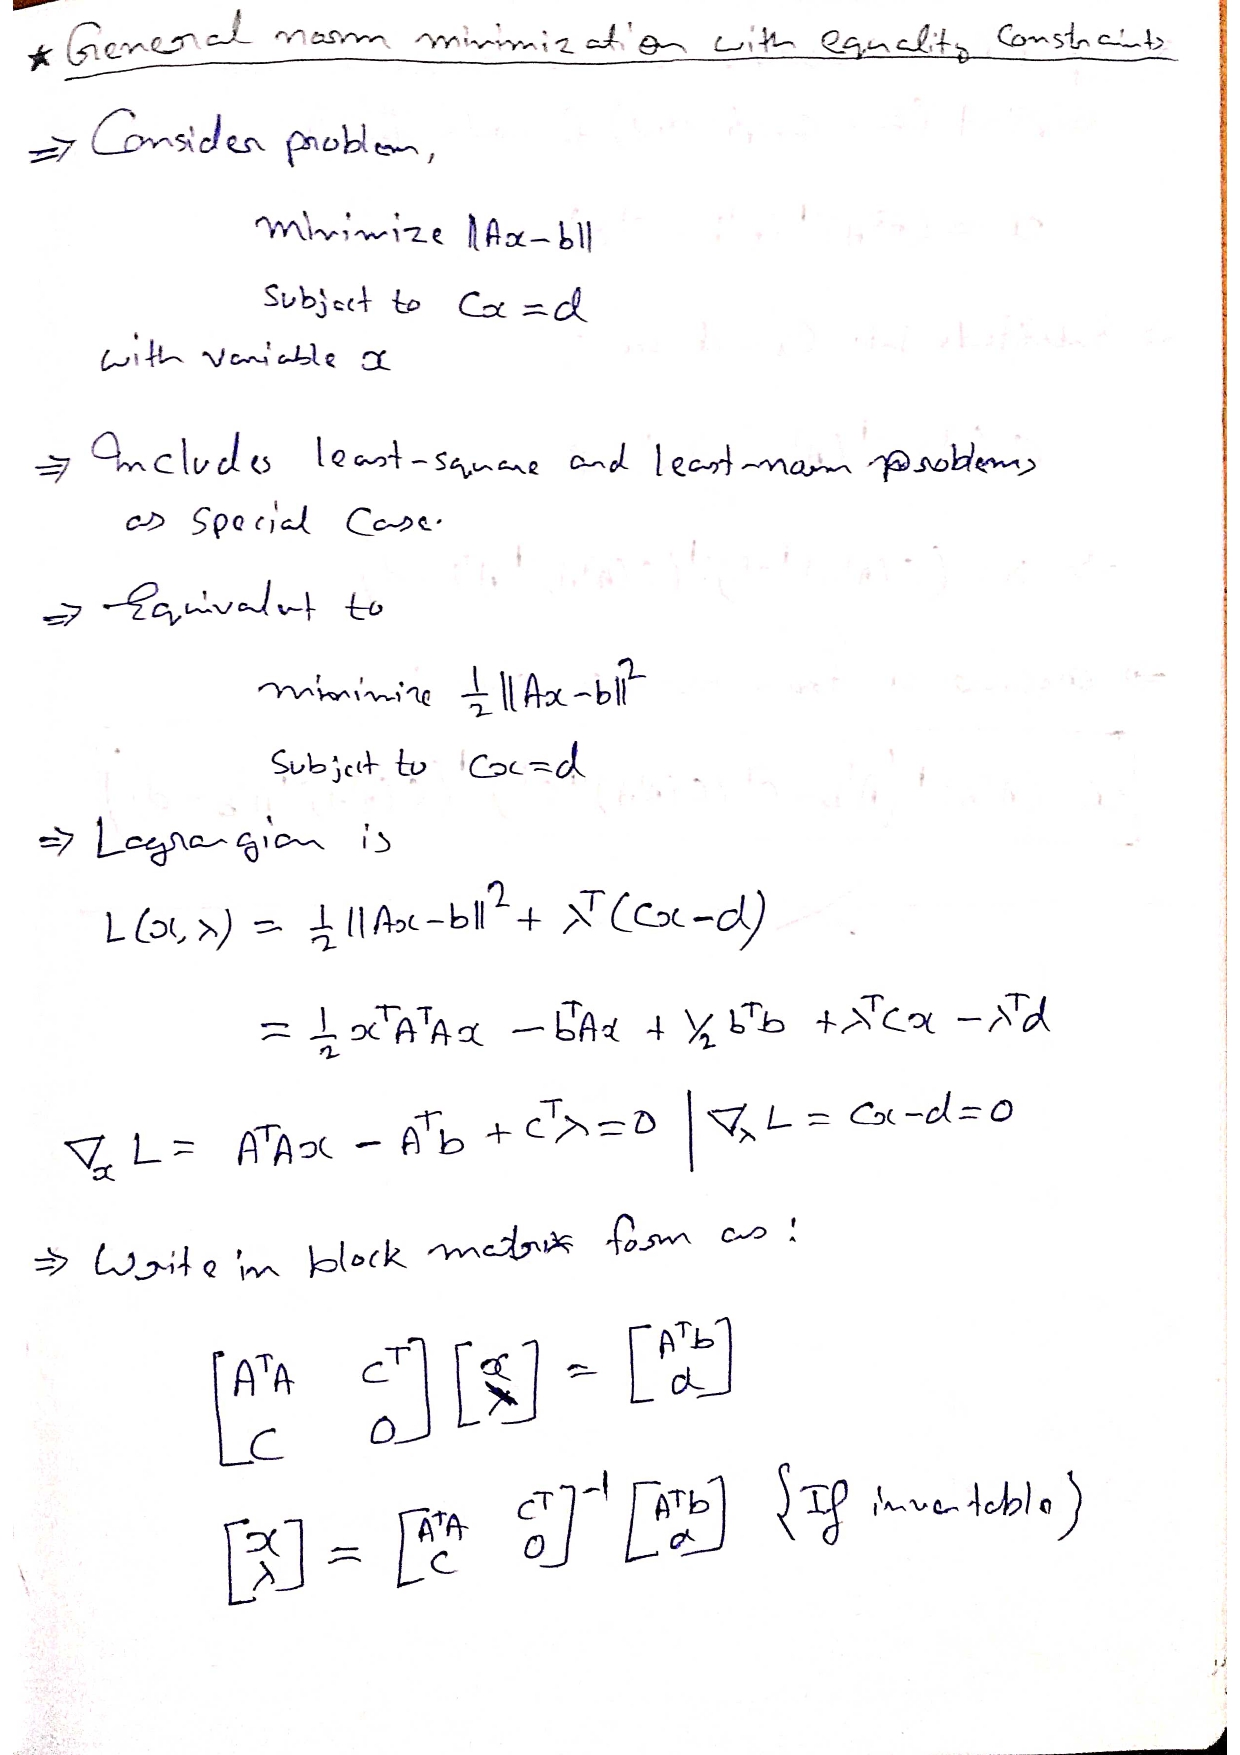 * General norm minimization with equality constraints
⇒ Consider problem,
minimize ||Ax-b||
Subject to Cx=d
with variable x
⇒ Includes least-square and least-norm problems
as special case.
⇒ Equivalent to
minimize 1/2 ||Ax-b||²
Subject to Cx=d
⇒ Lagrangian is
L(x,λ) = 1/2 ||Ax-b||² + λᵀ(Cx-d)
= 1/2 xᵀAᵀAx - bᵀAx + 1/2 bᵀb + λᵀCx - λᵀd
∇ₓL = AᵀAx - Aᵀb + Cᵀλ = 0 | ∇_λ L = Cx-d=0
⇒ Write in block matrix form as :
[AᵀA Cᵀ; C 0] [x; λ] = [Aᵀb; d]
[x; λ] = [AᵀA Cᵀ; C 0]⁻¹ [Aᵀb; d] {If invertable}